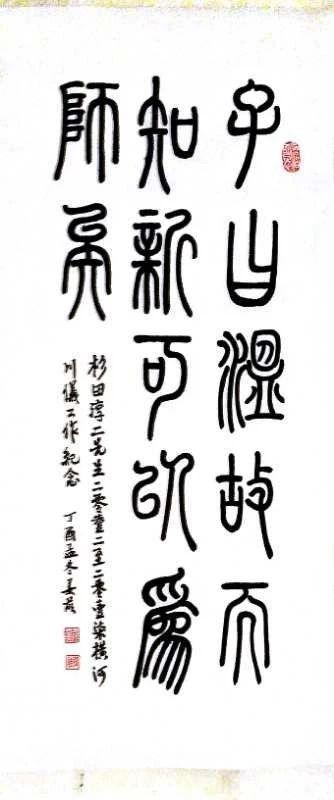 子曰溫故而
知新可以為
師矣
杉田淳二先生二零壹二至二零壹柒橫河
川儀工作紀念 丁酉孟冬姜